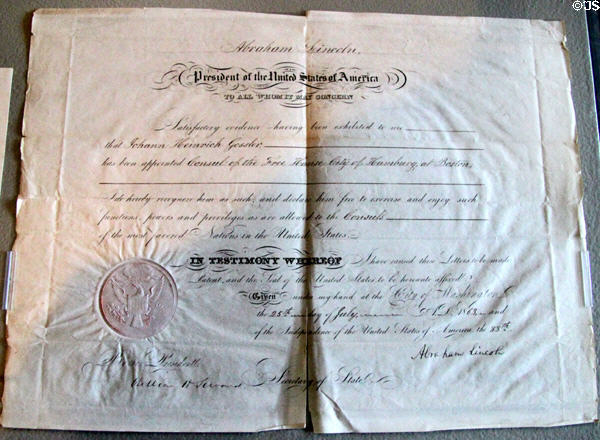 Abraham Lincoln,
President of the United States of America
TO ALL WHOM IT MAY CONCERN
Satisfactory evidence having been exhibited to me
that Johann Heinrich Gossler
has been appointed Consul of the Free Hanse City of Hamburg, at Boston
I do hereby recognize him as such, and declare him free to exercise and enjoy such
functions, powers and privileges as are allowed to the Consuls
of the most favored Nations in the United States.
IN TESTIMONY WHEREOF I have caused these Letters to be made
Patent, and the Seal of the United States to be hereunto affixed.
Given under my hand at the City of Washington
the 25th day of July, A.D. 1863 and
of the Independence of the United States of America, the 88th.
Abraham Lincoln
By the President
William H Seward Secretary of State
©US